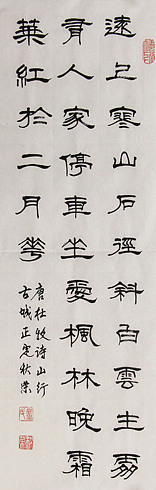 遠上寒山石徑斜白雲生處
有人家停車坐愛楓林晚霜
葉紅於二月花
唐杜牧诗山行
古城正定秋荣